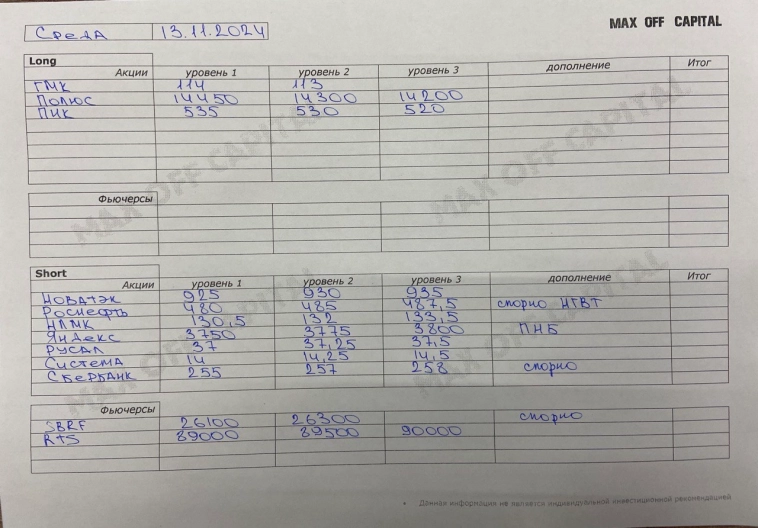 MAX OFF CAPITAL
Среда 13.11.2024
Long
Акции уровень 1 уровень 2 уровень 3 дополнение Итог
ГМК 114 113
Полюс 14450 14300 14200
ПИК 535 530 520
Фьючерсы
Short
Акции уровень 1 уровень 2 уровень 3 дополнение Итог
НОВАТЭК 925 930 935
Роснефть 480 485 487,5 спорно НГВТ
НЛМК 130,5 132 133,5
Яндекс 3750 3775 3800 ПНБ
РУСАЛ 37 37,25 37,5
Система 14 14,25 14,5
Сбербанк 255 257 258 спорно
Фьючерсы
SBRF 26100 26300 спорно
RTS 89000 89500 90000
• Данная информация не является индивидуальной инвестиционной рекомендацией
MAX OFF CAPITAL
MAX OFF CAPITAL
MAX OFF CAPITAL
MAX OFF CAPITAL